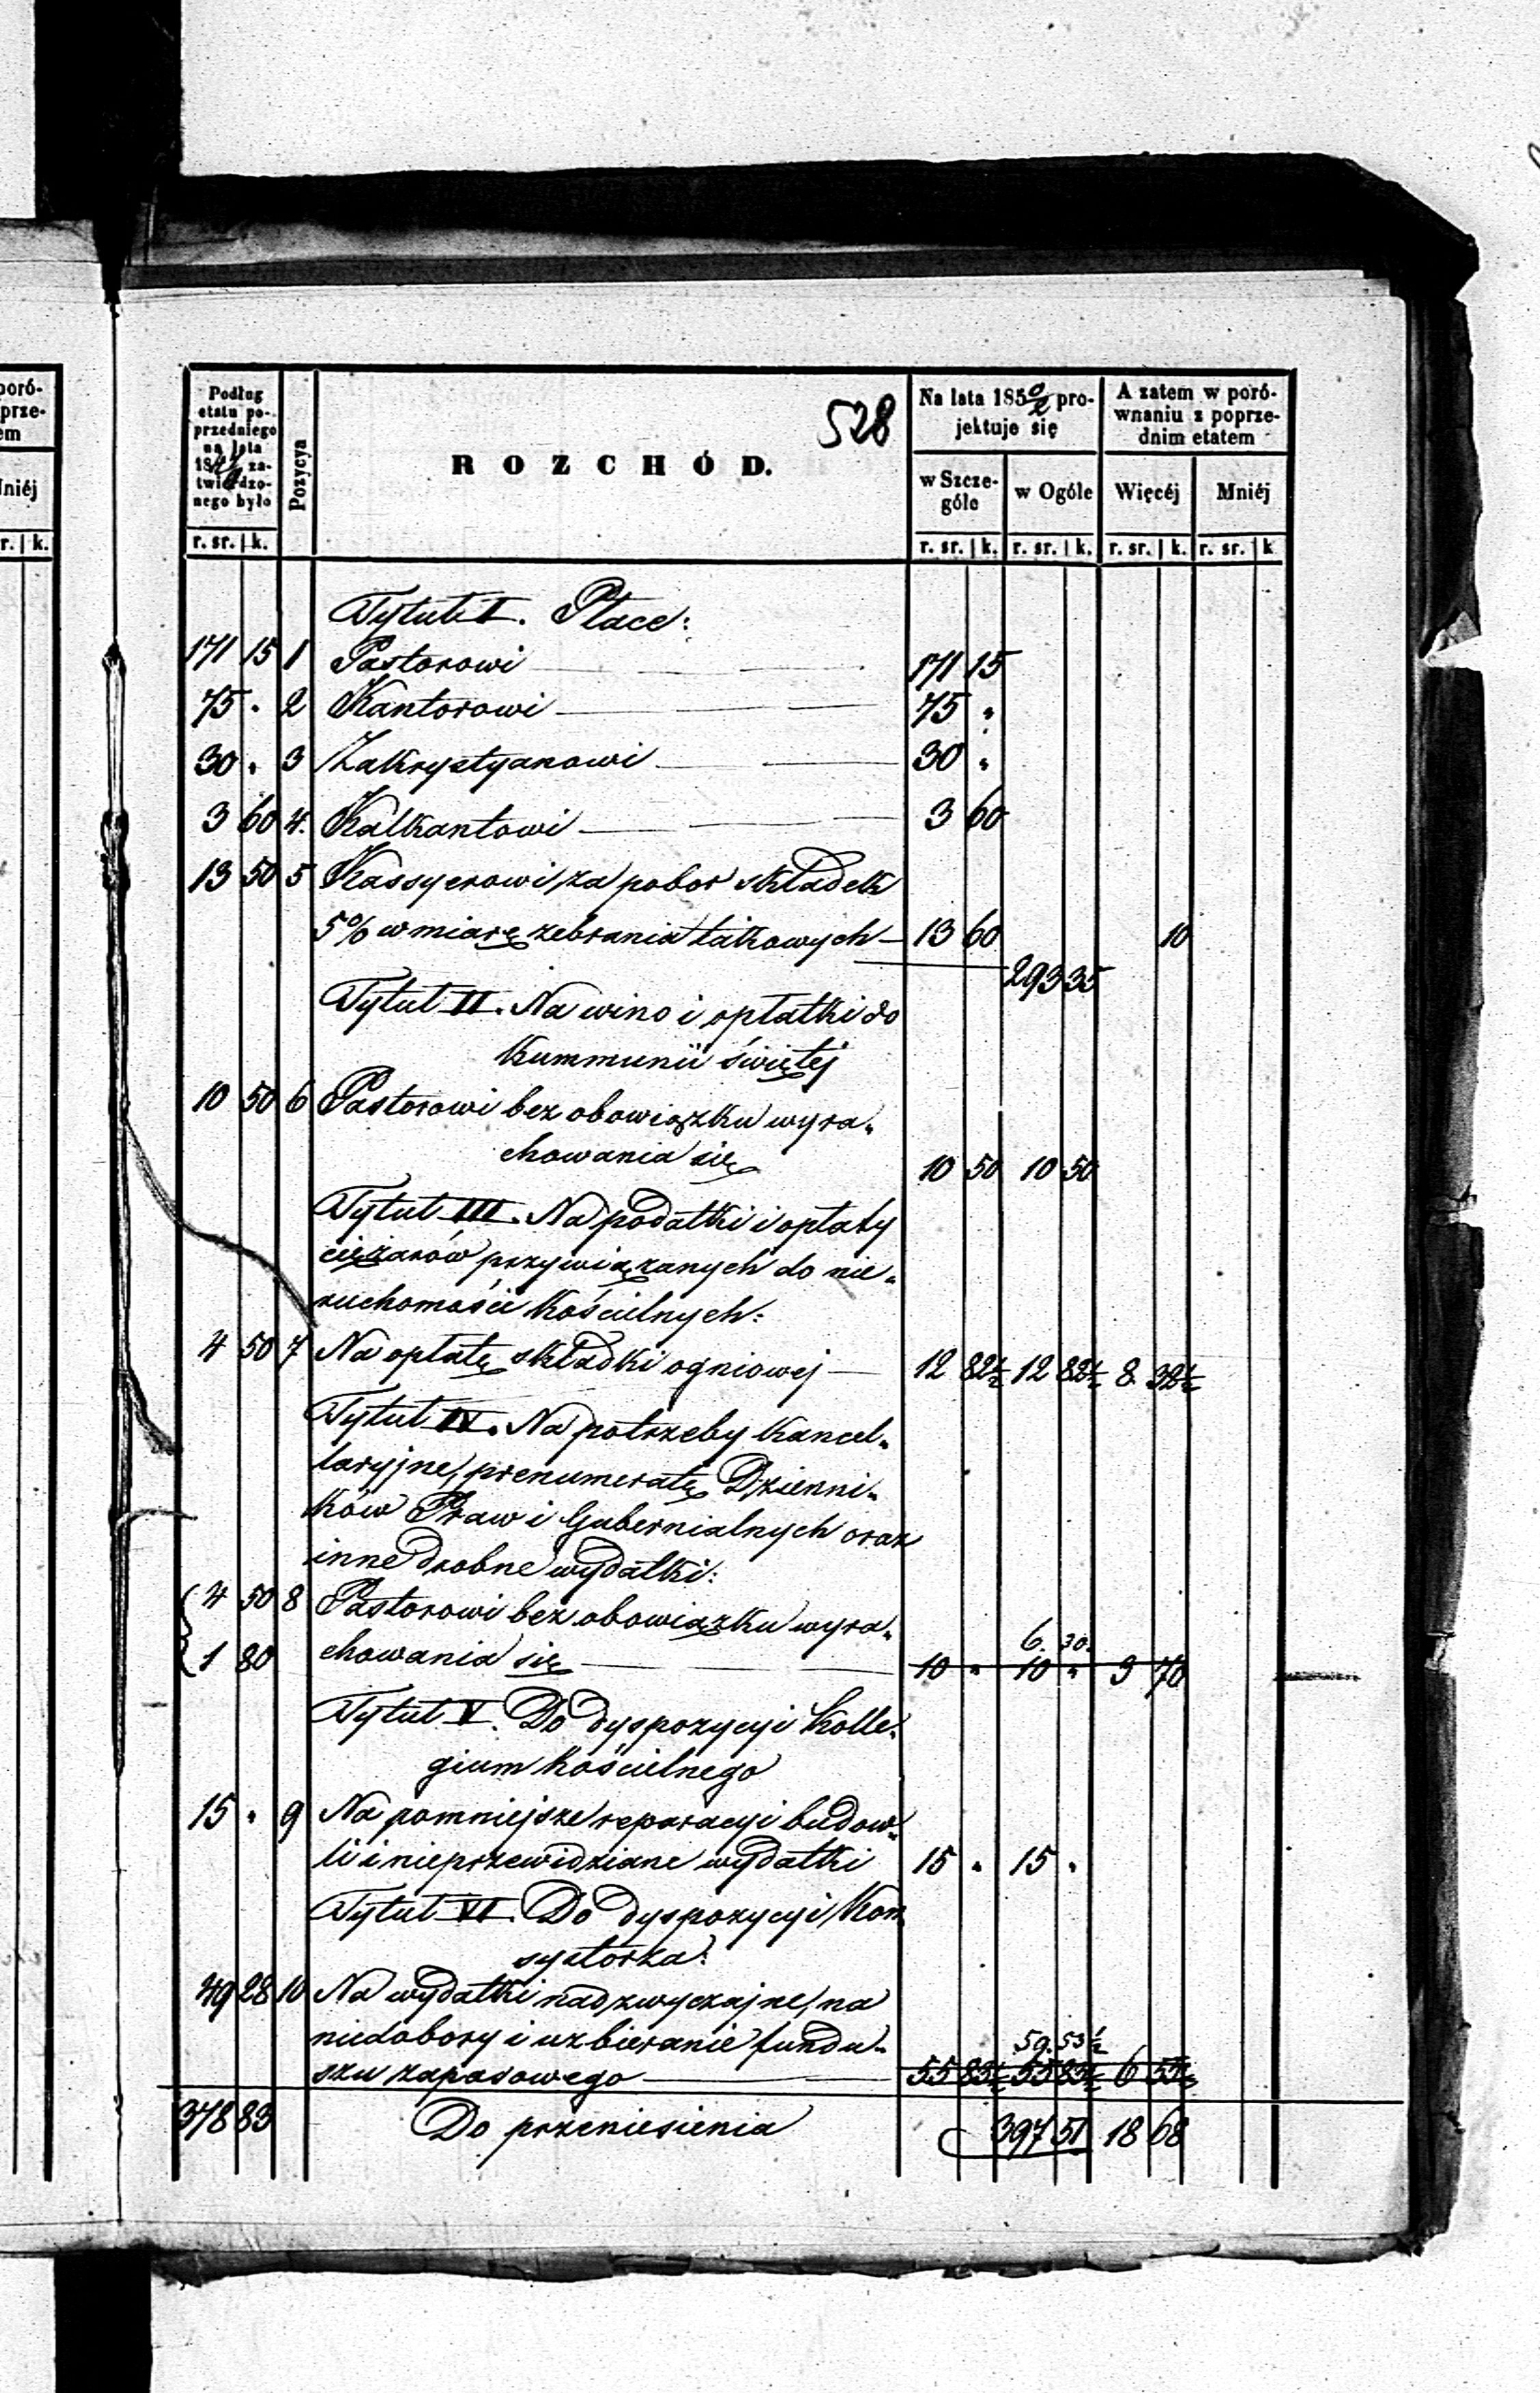 poró-
prze-
em
Mniéj
r. | k.
Podług
etatu po-
przedniego
na lata
18 za-
twierdzo-
nego było
r. sr. | k.
Pozycya
528
ROZCHÓD.
Na lata 185 0/2 pro-
jektuje się
w Szcze-
góle
w Ogóle
r. sr. | k. r. sr. | k.
A zatem w poró-
wnaniu z poprze-
dnim etatem
Więcéj Mniéj
r. sr. | k. r. sr. | k
Tytuł I. Płace:
171 15 1 Pastorowi 171 15
75 " 2 Kantorowi 75 "
30 " 3 Zakrystyanowi 30 "
3 60 4. Kalkantowi 3 60
13 50 5 Kassyerowi za pobor składek
5% w miarę zebrania takowych 13 60 10
293 35
Tytuł II. Na wino i opłatki do
Kummunii świętéj
10 50 6 Pastorowi bez obowiązku wyra"
chowania się 10 50 10 50
Tytuł III. Na podatki i opłaty
ciężarów przywiązanych do nie"
ruchomości Kościelnych:
4 50 7 Na opłatę składki ogniowej 12 82½ 12 82½ 8 32½
Tytuł IV. Na potrzeby Kancel"
laryjne, prenumeratę Dzienni"
ków Praw i Gubernialnych oraz
inne drobne wydatki:
4 50 8 Pastorowi bez obowiązku wyra"
6. 30.
1 80 chowania się 10 " 10 " 3 70
Tytuł V. Do dyspozycyi Kolle"
gium Kościelnego
15 " 9 Na pomniejsze reparacyi budow"
li i nieprzewidziane wydatki 15 " 15 "
Tytuł VI. Do dyspozycyi Kon
systorza:
49 28 10 Na wydatki nadzwyczajne, na
niedobory i uzbieranie fundu" 59. 53½
szu zapasowego 55 83½ 55 83½ 6 55½
378 83 Do przeniesienia 397 51 18 68